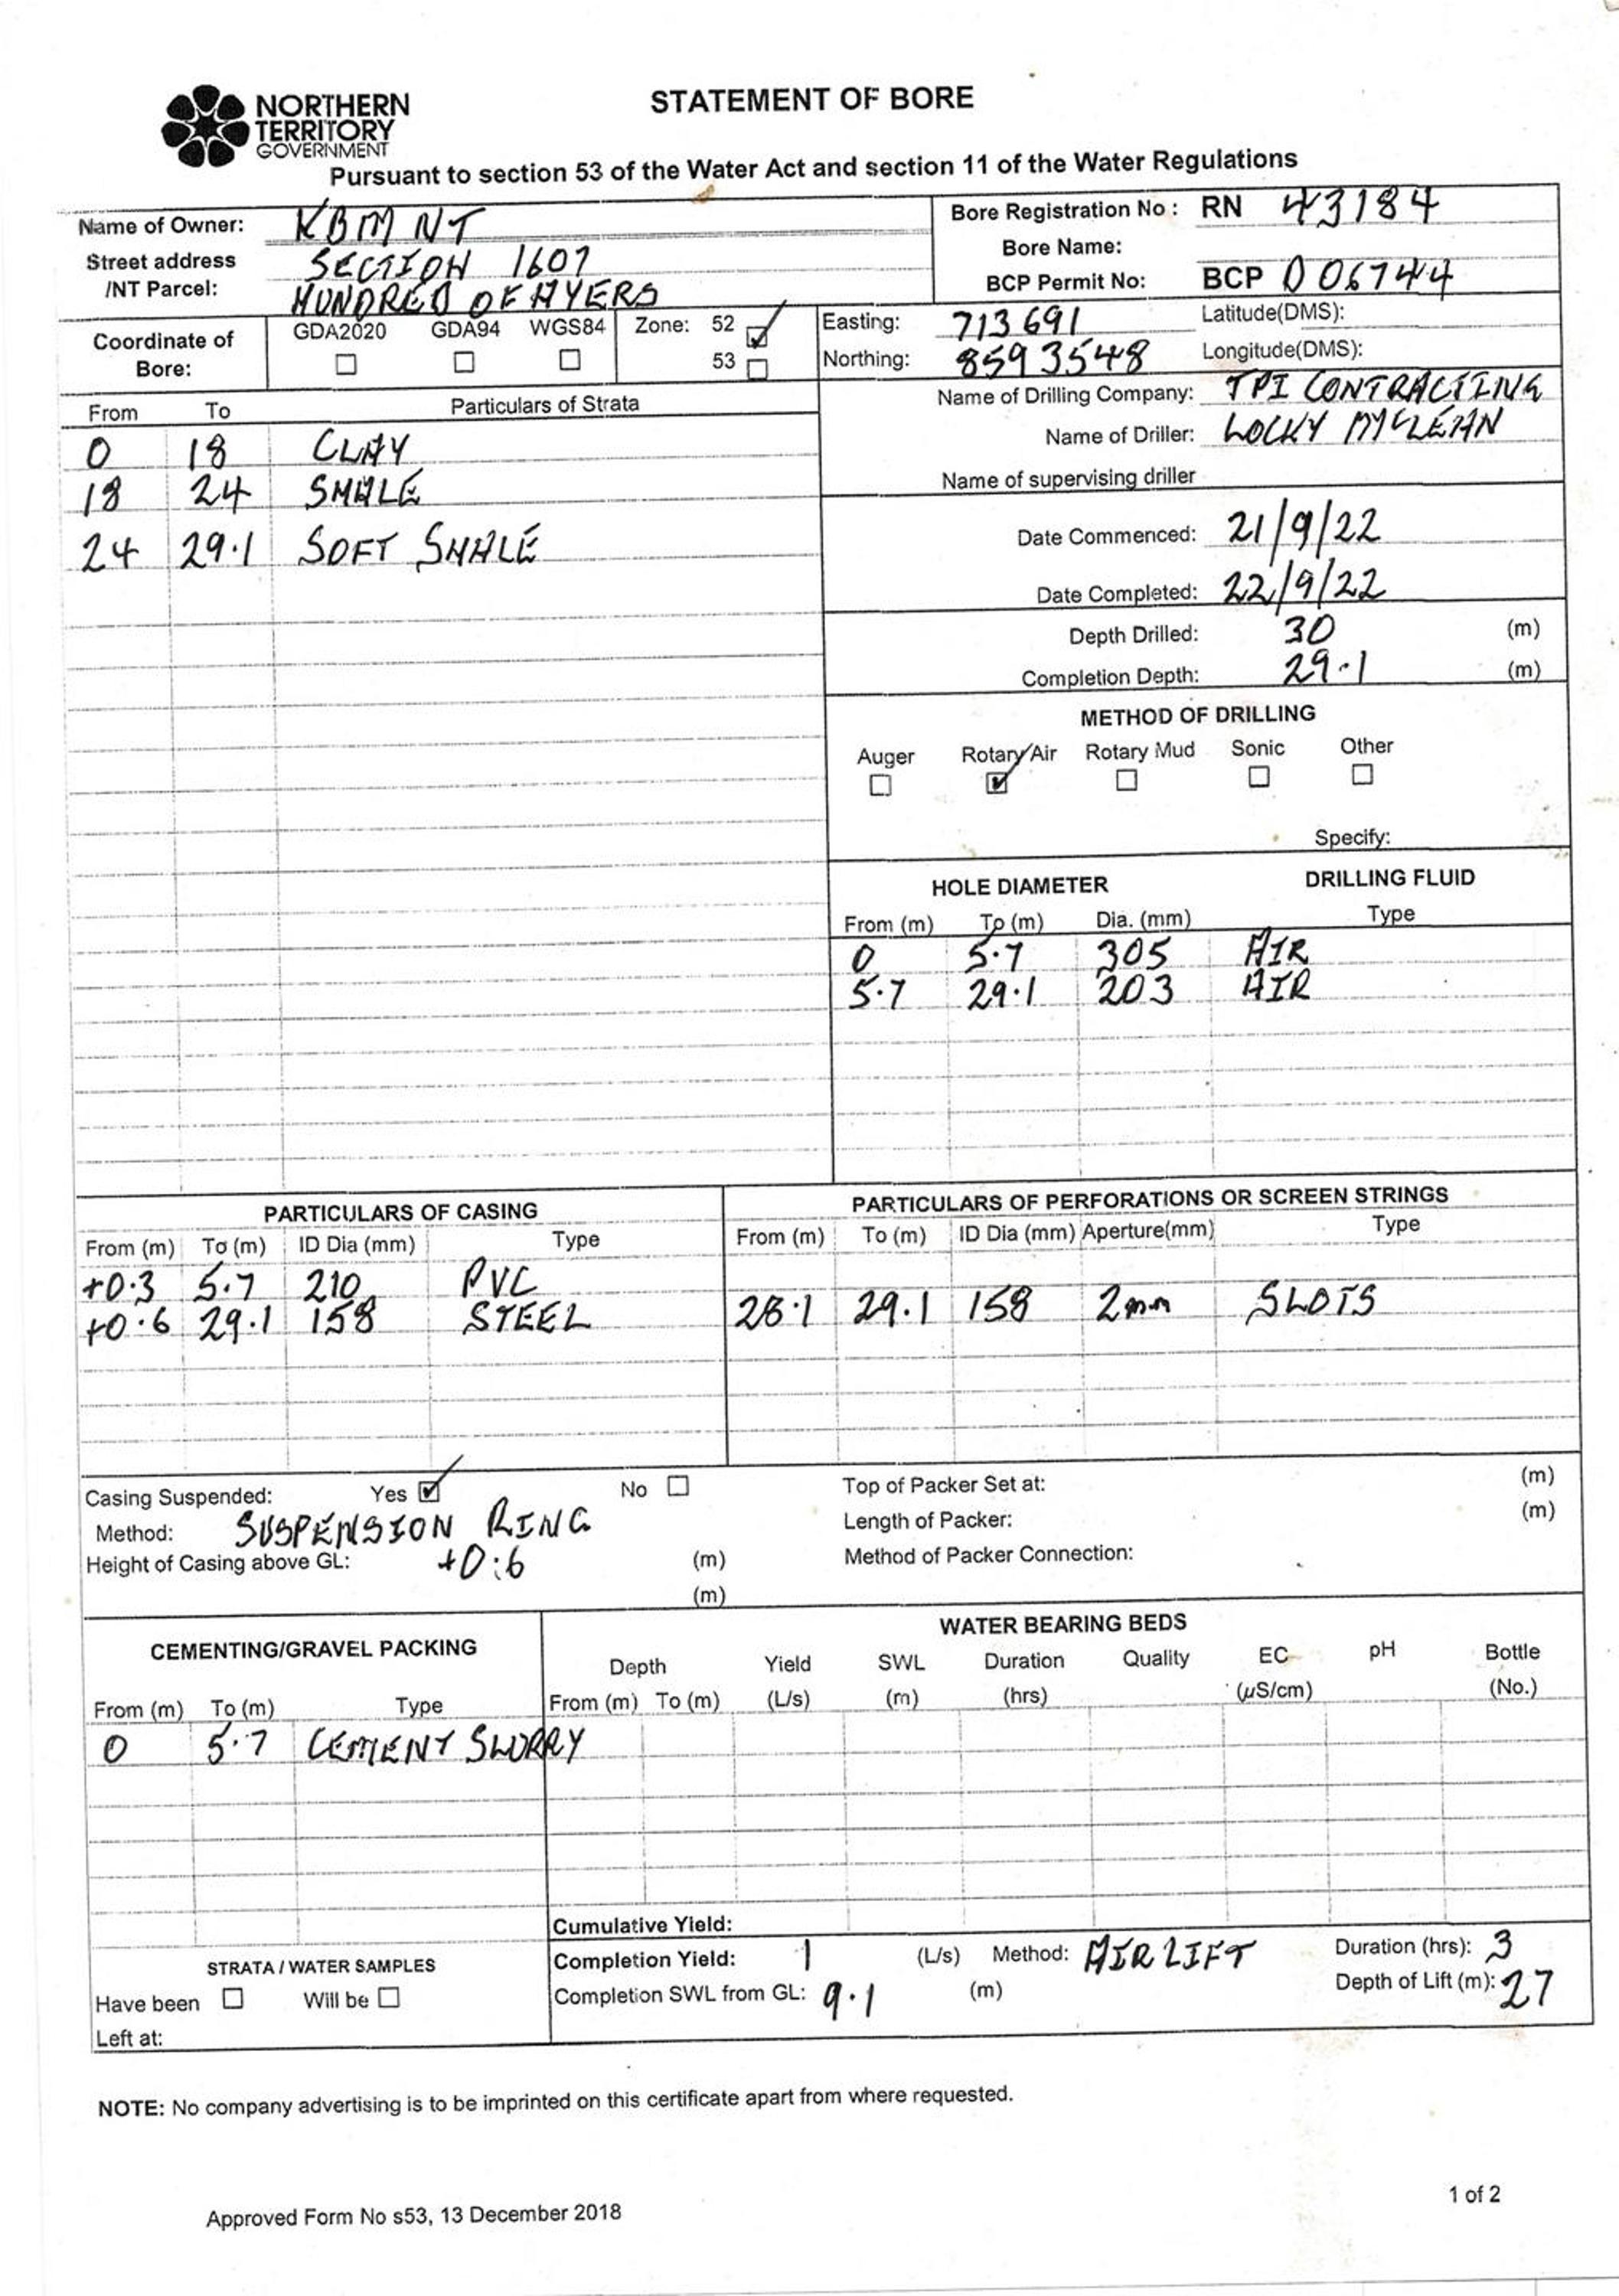 NORTHERN
TERRITORY
GOVERNMENT
STATEMENT OF BORE
Pursuant to section 53 of the Water Act and section 11 of the Water Regulations
Name of Owner: KBM NT
Street address /NT Parcel: SECTION 1607
HUNDRED OF AYERS
Bore Registration No : RN 43184
Bore Name:
BCP Permit No: BCP D06744
Coordinate of Bore:
GDA2020 ☐ GDA94 ☐ WGS84 ☐
Zone: 52 ☑
53 ☐
Easting: 713691
Northing: 8593548
Latitude(DMS):
Longitude(DMS):
From To Particulars of Strata
0 18 CLAY
18 24 SHALE
24 29.1 SOFT SHALE
Name of Drilling Company: TPI CONTRACTING
Name of Driller: LOCKY MCLEAN
Name of supervising driller
Date Commenced: 21/9/22
Date Completed: 22/9/22
Depth Drilled: 30 (m)
Completion Depth: 29.1 (m)
METHOD OF DRILLING
Auger ☐ Rotary Air ☑ Rotary Mud ☐ Sonic ☐ Other ☐
Specify:
HOLE DIAMETER DRILLING FLUID
From (m) To (m) Dia. (mm) Type
0 5.7 305 AIR
5.7 29.1 203 AIR
PARTICULARS OF CASING
From (m) To (m) ID Dia (mm) Type
+0.3 5.7 210 PVC
+0.6 29.1 158 STEEL
PARTICULARS OF PERFORATIONS OR SCREEN STRINGS
From (m) To (m) ID Dia (mm) Aperture(mm) Type
28.1 29.1 158 2mm SLOTS
Casing Suspended: Yes ☑ No ☐
Method: SUSPENSION RING
Height of Casing above GL: +0.6 (m)
(m)
Top of Packer Set at: (m)
Length of Packer: (m)
Method of Packer Connection:
CEMENTING/GRAVEL PACKING
From (m) To (m) Type
0 5.7 CEMENT SLURRY
WATER BEARING BEDS
Depth Yield SWL Duration Quality EC pH Bottle
From (m) To (m) (L/s) (m) (hrs) (µS/cm) (No.)
Cumulative Yield:
Completion Yield: 1 (L/s) Method: AIRLIFT Duration (hrs): 3
Completion SWL from GL: 9.1 (m) Depth of Lift (m): 27
STRATA / WATER SAMPLES
Have been ☐ Will be ☐
Left at:
NOTE: No company advertising is to be imprinted on this certificate apart from where requested.
1 of 2
Approved Form No s53, 13 December 2018